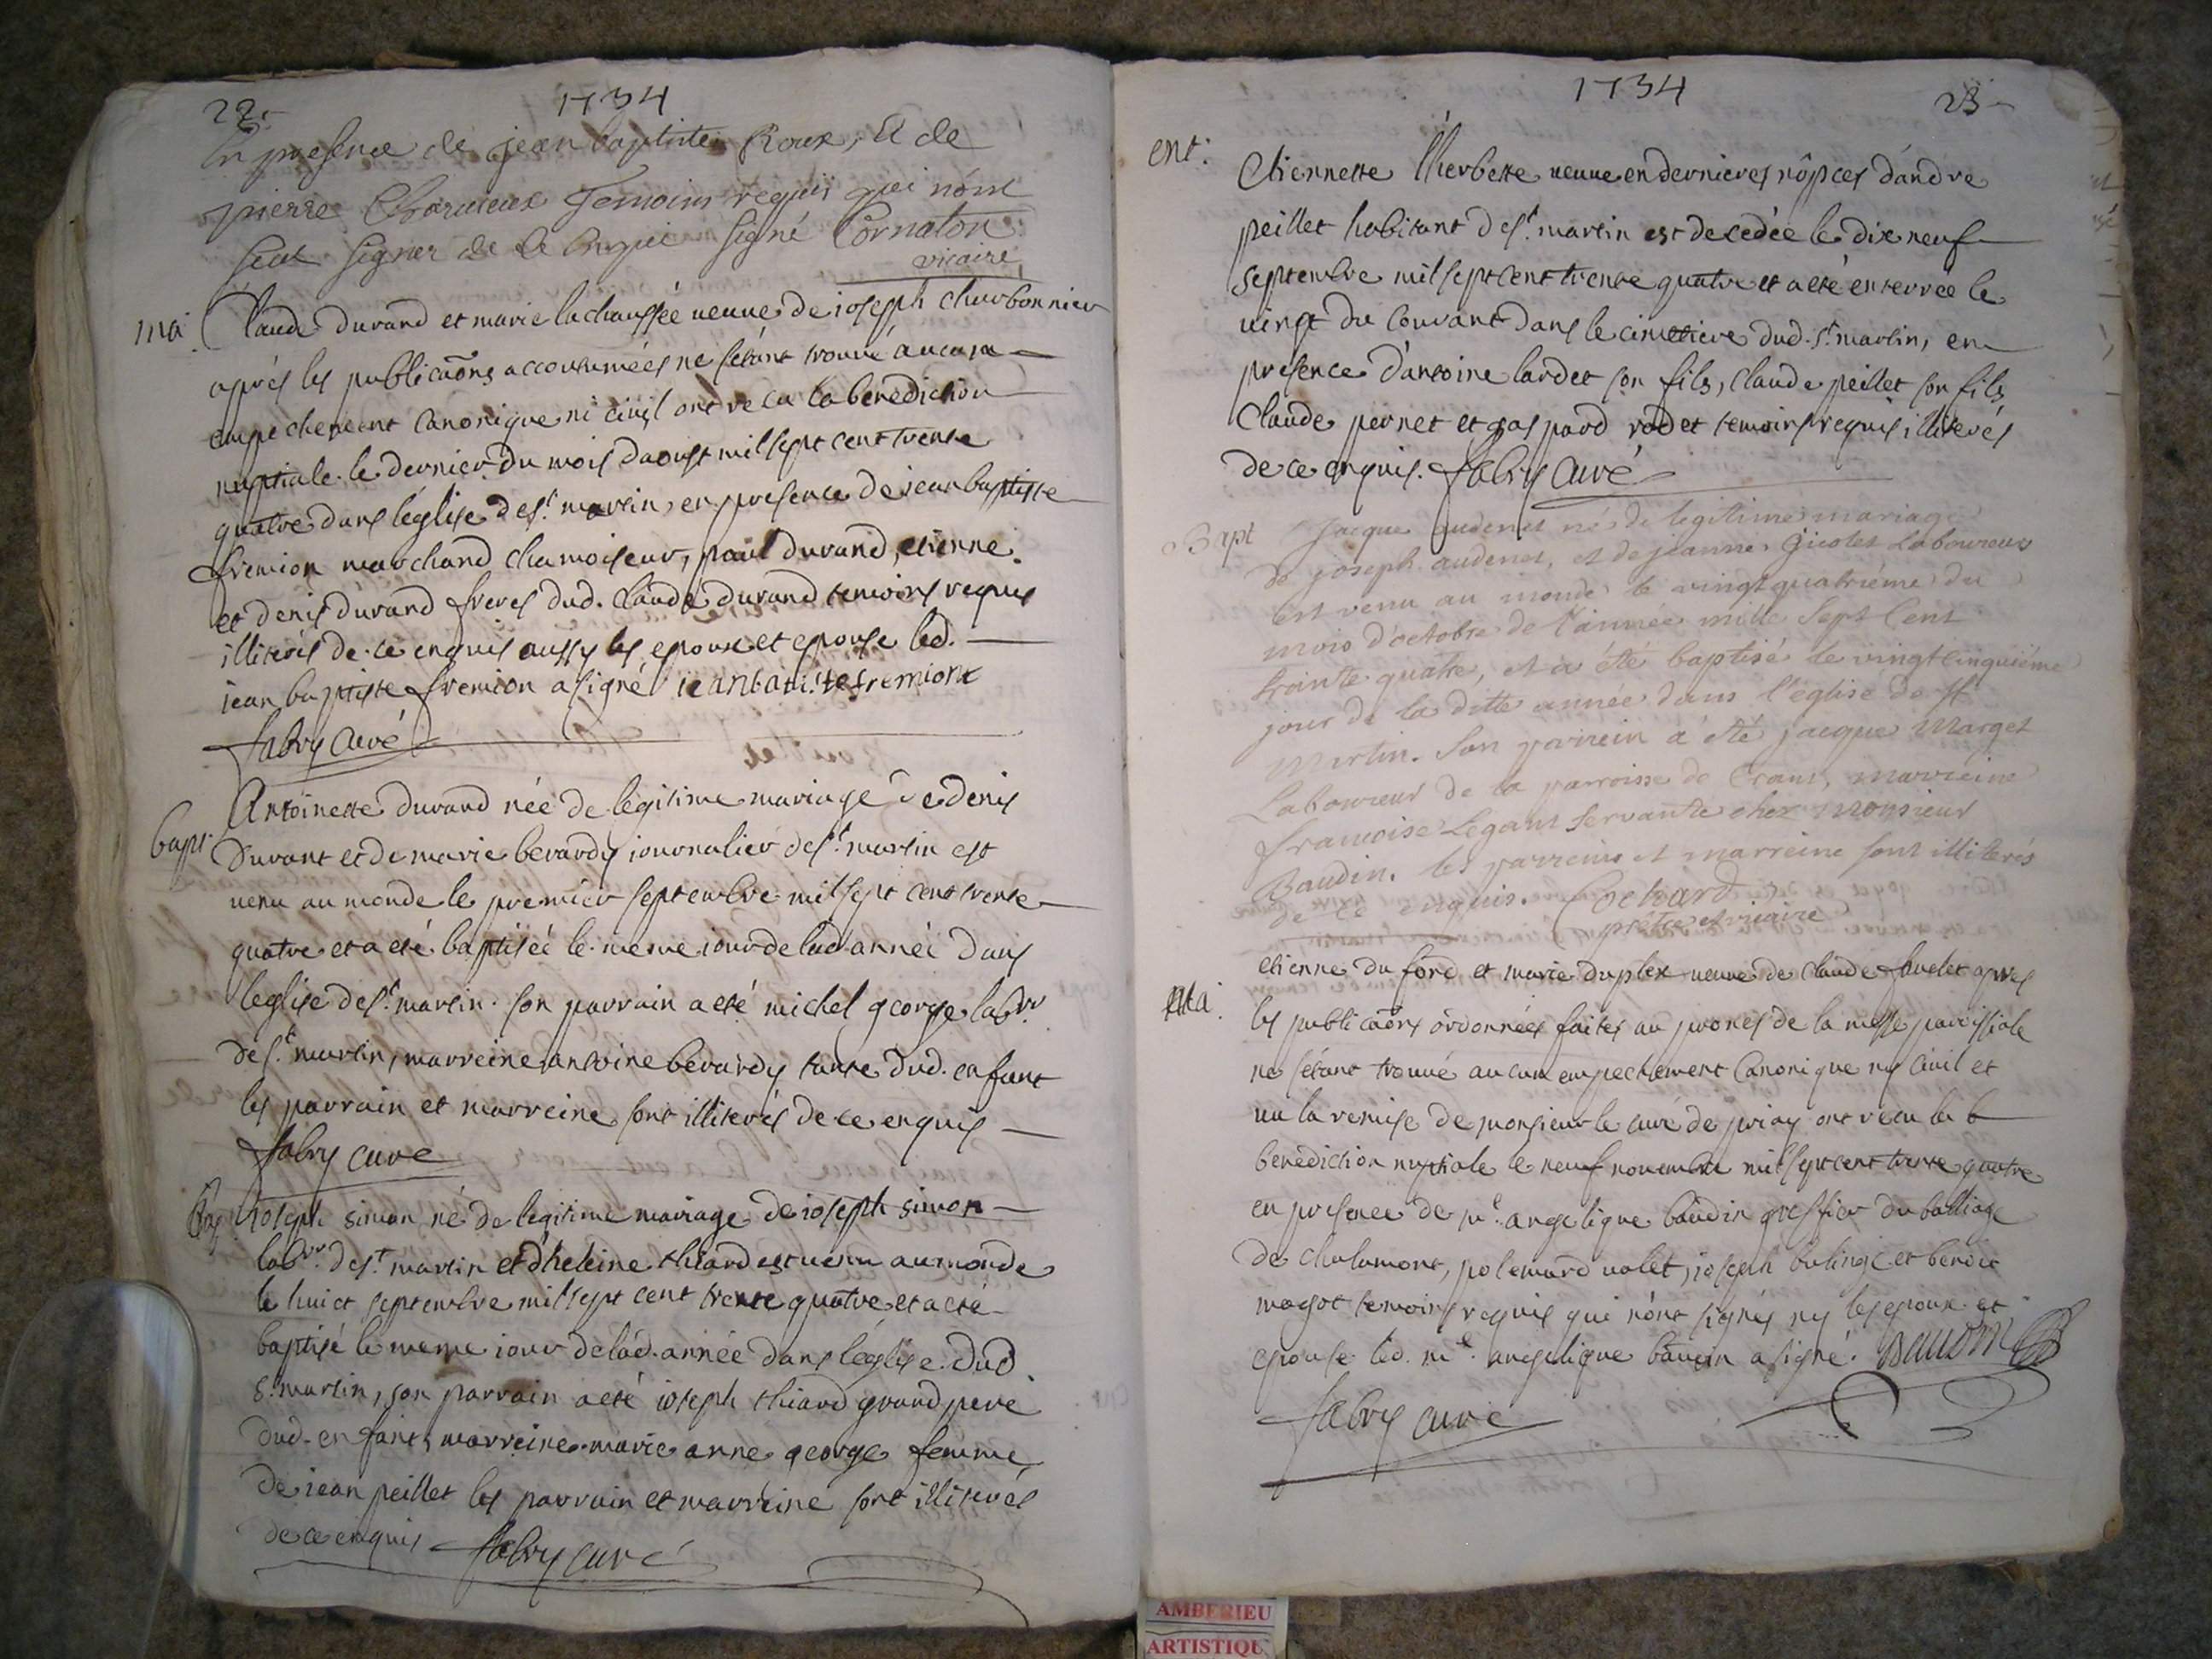 22.
1734
En presence de jean baptiste Roux, Et de
pierre Charvieux Temoins requis qui nont
sceu signer de ce enquis signé Cornaton
vicaire
ma.
Claude durand et marie lachaussée veuve de ioseph charbonnier
après les publicaons accoutumées ne setant trouvé aucun
empechement canonique ni civil ont recu la benediction
nuptiale le dernier du mois daoust mil sept cent trente
quatre dans léglise de st. martin, en presence de jean baptiste
fremion marchand chamoiseur, paul durand, etienne
et denis durand freres dud. Claude durand temoins requis
illiterés de ce enquis aussy les epoux et epouse led.
jean baptiste fremion a signé ieanbatistefremiont
fabry curé
bapt.
Antoinette durand née de legitime mariage de denis
durant et de marie berardy iournalier de st. martin est
venu au monde le premier septembre mil sept cent trente
quatre et a eté baptiséé le meme iour de lad. année dans
leglise de st. martin. son parrain a eté michel george labvr.
de st. martin, marreine antoine berardy tante dud. enfant
les parrain et marreine sont illiterés de ce enquis
fabry curé
bap.
ioseph simon né de legitime mariage de ioseph simon
labvr. de st. martin et d'heleine thiard est venu au monde
le huict septembre mil sept cent trente quatre et a eté
baptisé le meme iour de lad. année dans léglise dud.
s. martin, son parrain a eté ioseph thiard grand pere
dud. enfant, marreine marie anne george femme
de iean peillet les parrain et marreine sont illiterés
de ce enquis fabry curé
1734
23
ent.
Etiennette lherbette veuve en dernieres nôpces d'andre
peillet habitant de st. martin est decedée le dix neuf
septembre mil sept cent trente quatre et a eté enterrée le
vingt du courant dans le cimetiere dud. st. martin, en
presence d'antoine lardet son fils, claude peillet son fils
Claude pernet et gaspard rodet temoins requis illiterés
de ce enquis. fabry curé
Bapt
Jacque audenet né de legitime mariage
de joseph audenet, et de jeanne Gicolet Laboureurs
est venu au monde le vingt quatriéme du
mois d'octobre de l'année mille Sept Cent
trante quatre, et à été baptisé le vingt cinquiéme
jour de la ditte année dans l'église de st
Martin. Son parrein à été jacque Marget
Laboureur de la parroisse de Crans, marreine
francoise Legant Servante chez Monsieur
Baudin. les parreins et marreine sont illiterés
de ce enquis. Cochard
prêtre et vicaire
Ma.
etienne du ford et marie duplex veuve de claude fluelet apres
les publicaons ordonnées faites au prones de la messe paroissiale
ne sétant trouvé aucun empechement Canonique ny Civil et
vu la remise de monsieur le curé de priay ont recu la b
benediction nuptiale le neuf novembre mil sept cent trente quatre
en presence de me. angelique baudin greffier du balliage
de chalamont, polemard valet, ioseph bulinge et benoit
magot temoins requis qui n'ont signés ny les epoux et
epouse led. me. angelique baudin a signé. Baudin
fabry curé
AMBERIEU
ARTISTIQU